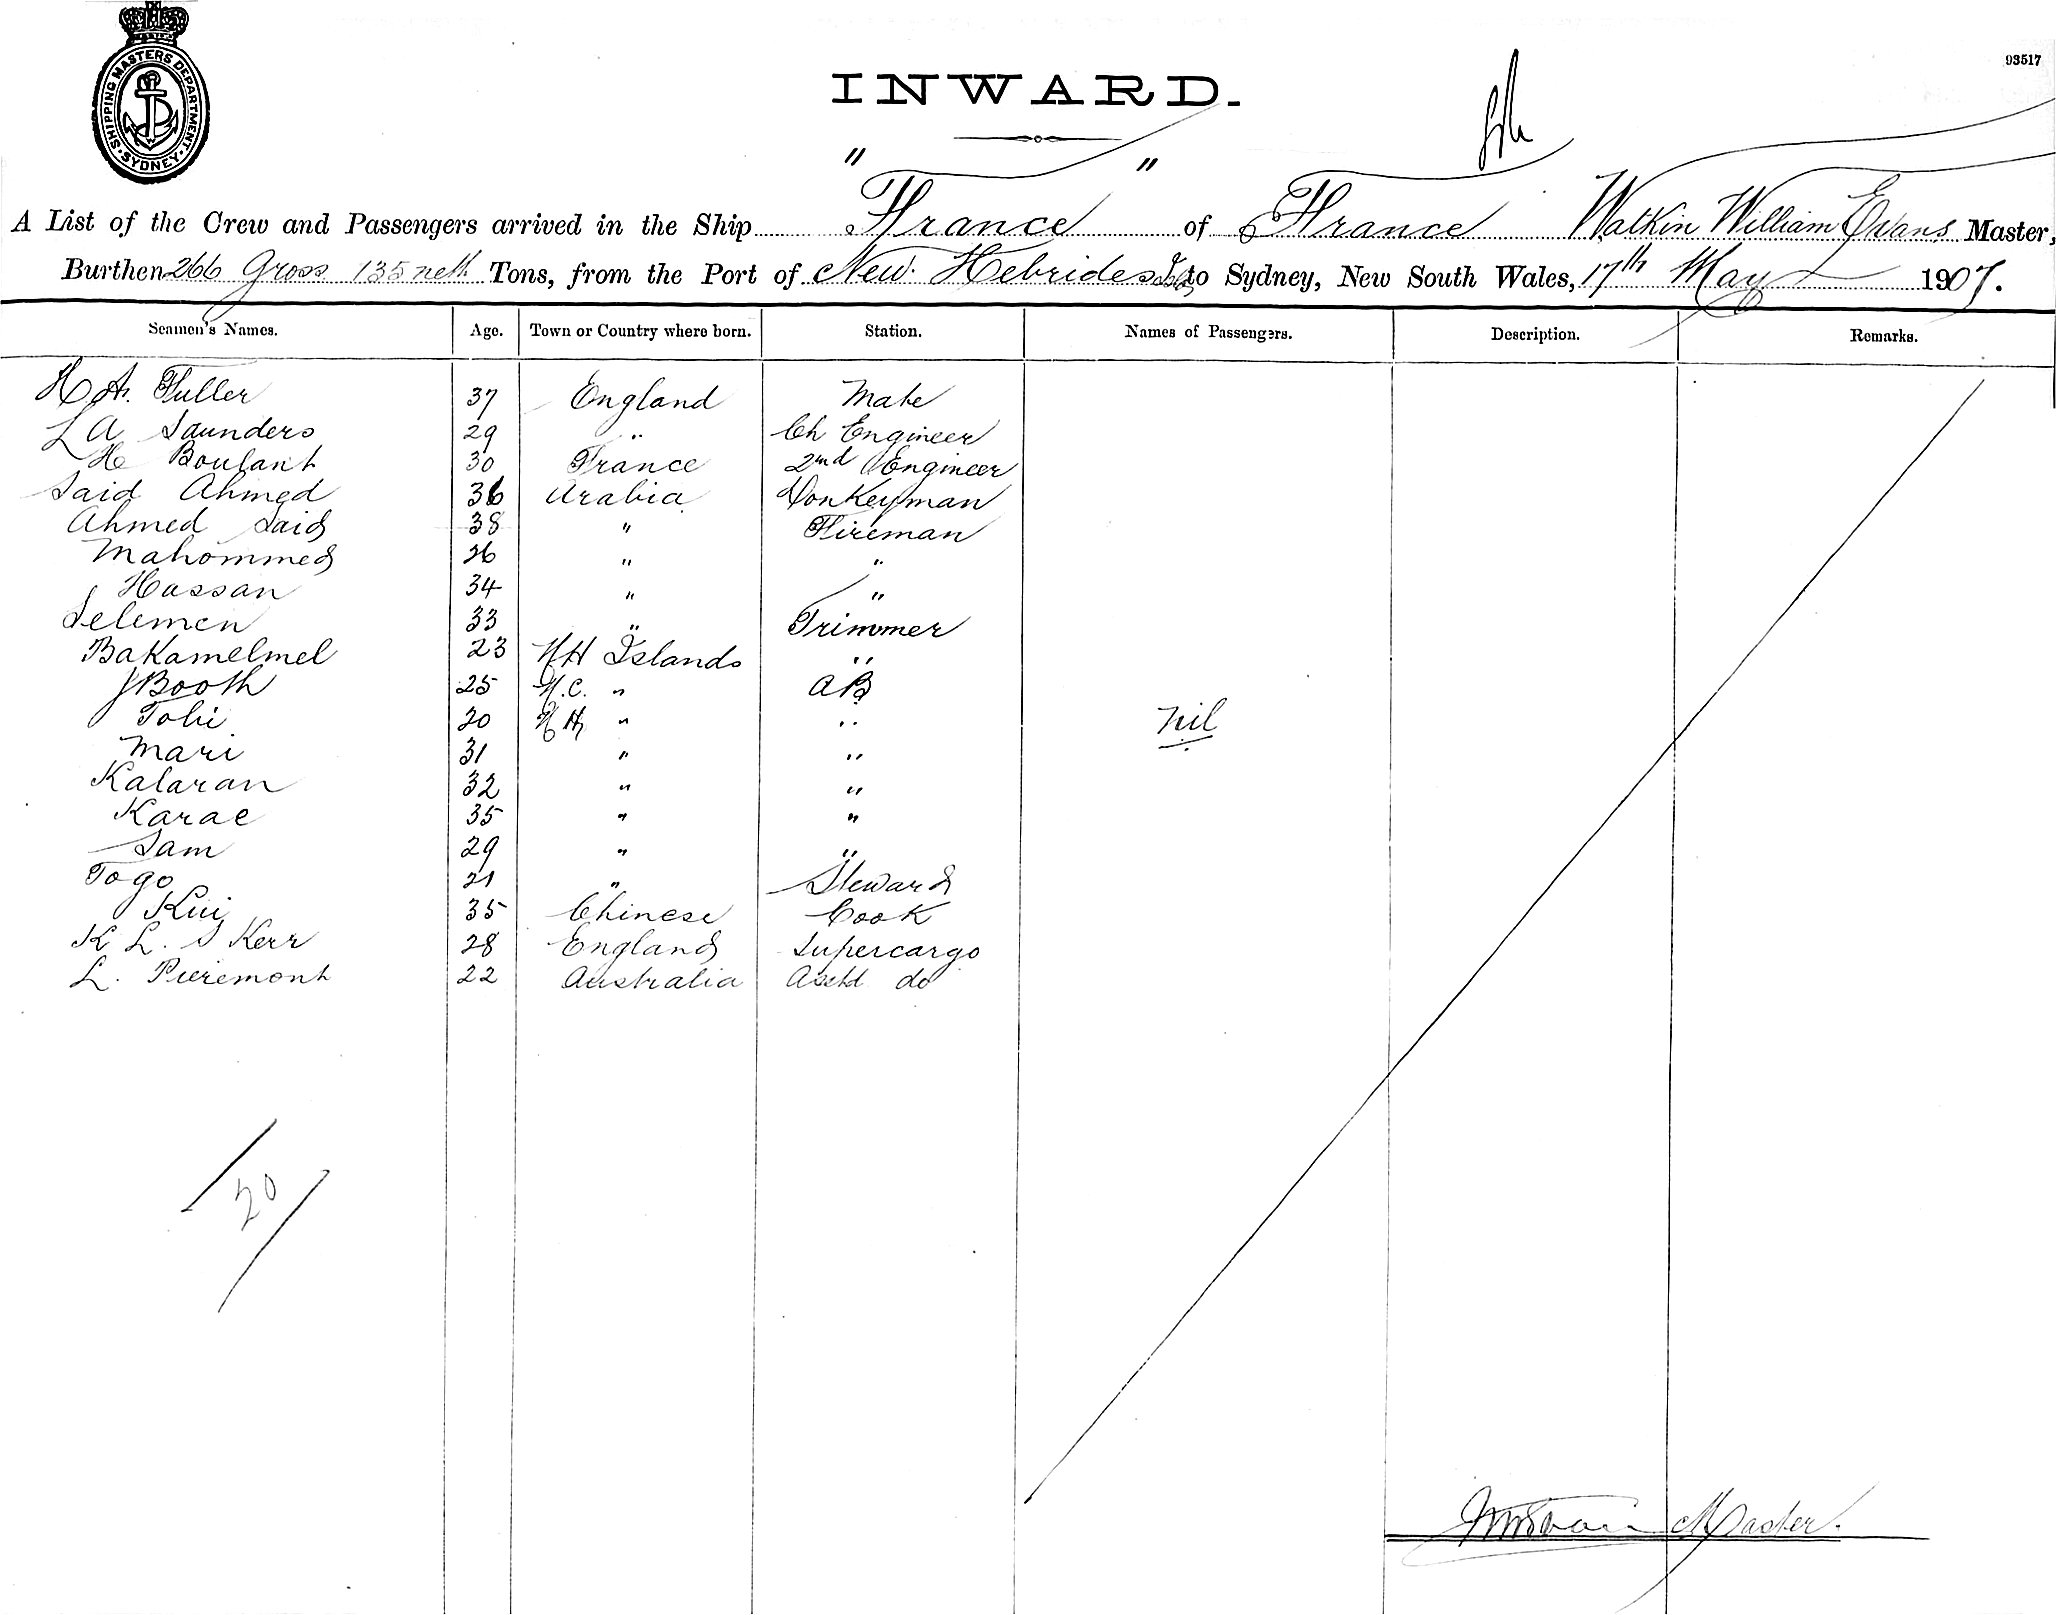 SHIPPING MASTERS DEPARTMENT
· SYDNEY ·
93517
INWARD.
A List of the Crew and Passengers arrived in the Ship "France" of France Watkin William Evans Master,
Burthen 266 Gross 135 nett Tons, from the Port of New Hebrides Isds to Sydney, New South Wales, 17th May 1907.
Seamen's Names. Age. Town or Country where born. Station. Names of Passengers. Description. Remarks.
H A. Fuller 37 England Mate
L A Saunders 29 " Ch Engineer
H Boulant 30 France 2nd Engineer
Said Ahmed 36 Arabia Donkeyman
Ahmed Said 38 " Fireman
Mahommed 26 " "
Hassan 34 " "
Selemen 33 " Trimmer
Bakamelmel 23 N H Islands "
J Booth 25 N.C. " AB
Tobi 20 N H " "
Nil
Mari 31 " "
Kalaran 32 " "
Karae 35 " "
Sam 29 " "
Togo 21 " Steward
Kui 35 Chinese Cook
K L. S Kerr 28 England Supercargo
L. Pieremont 22 Australia Asstd do
20
WWEvans Master.